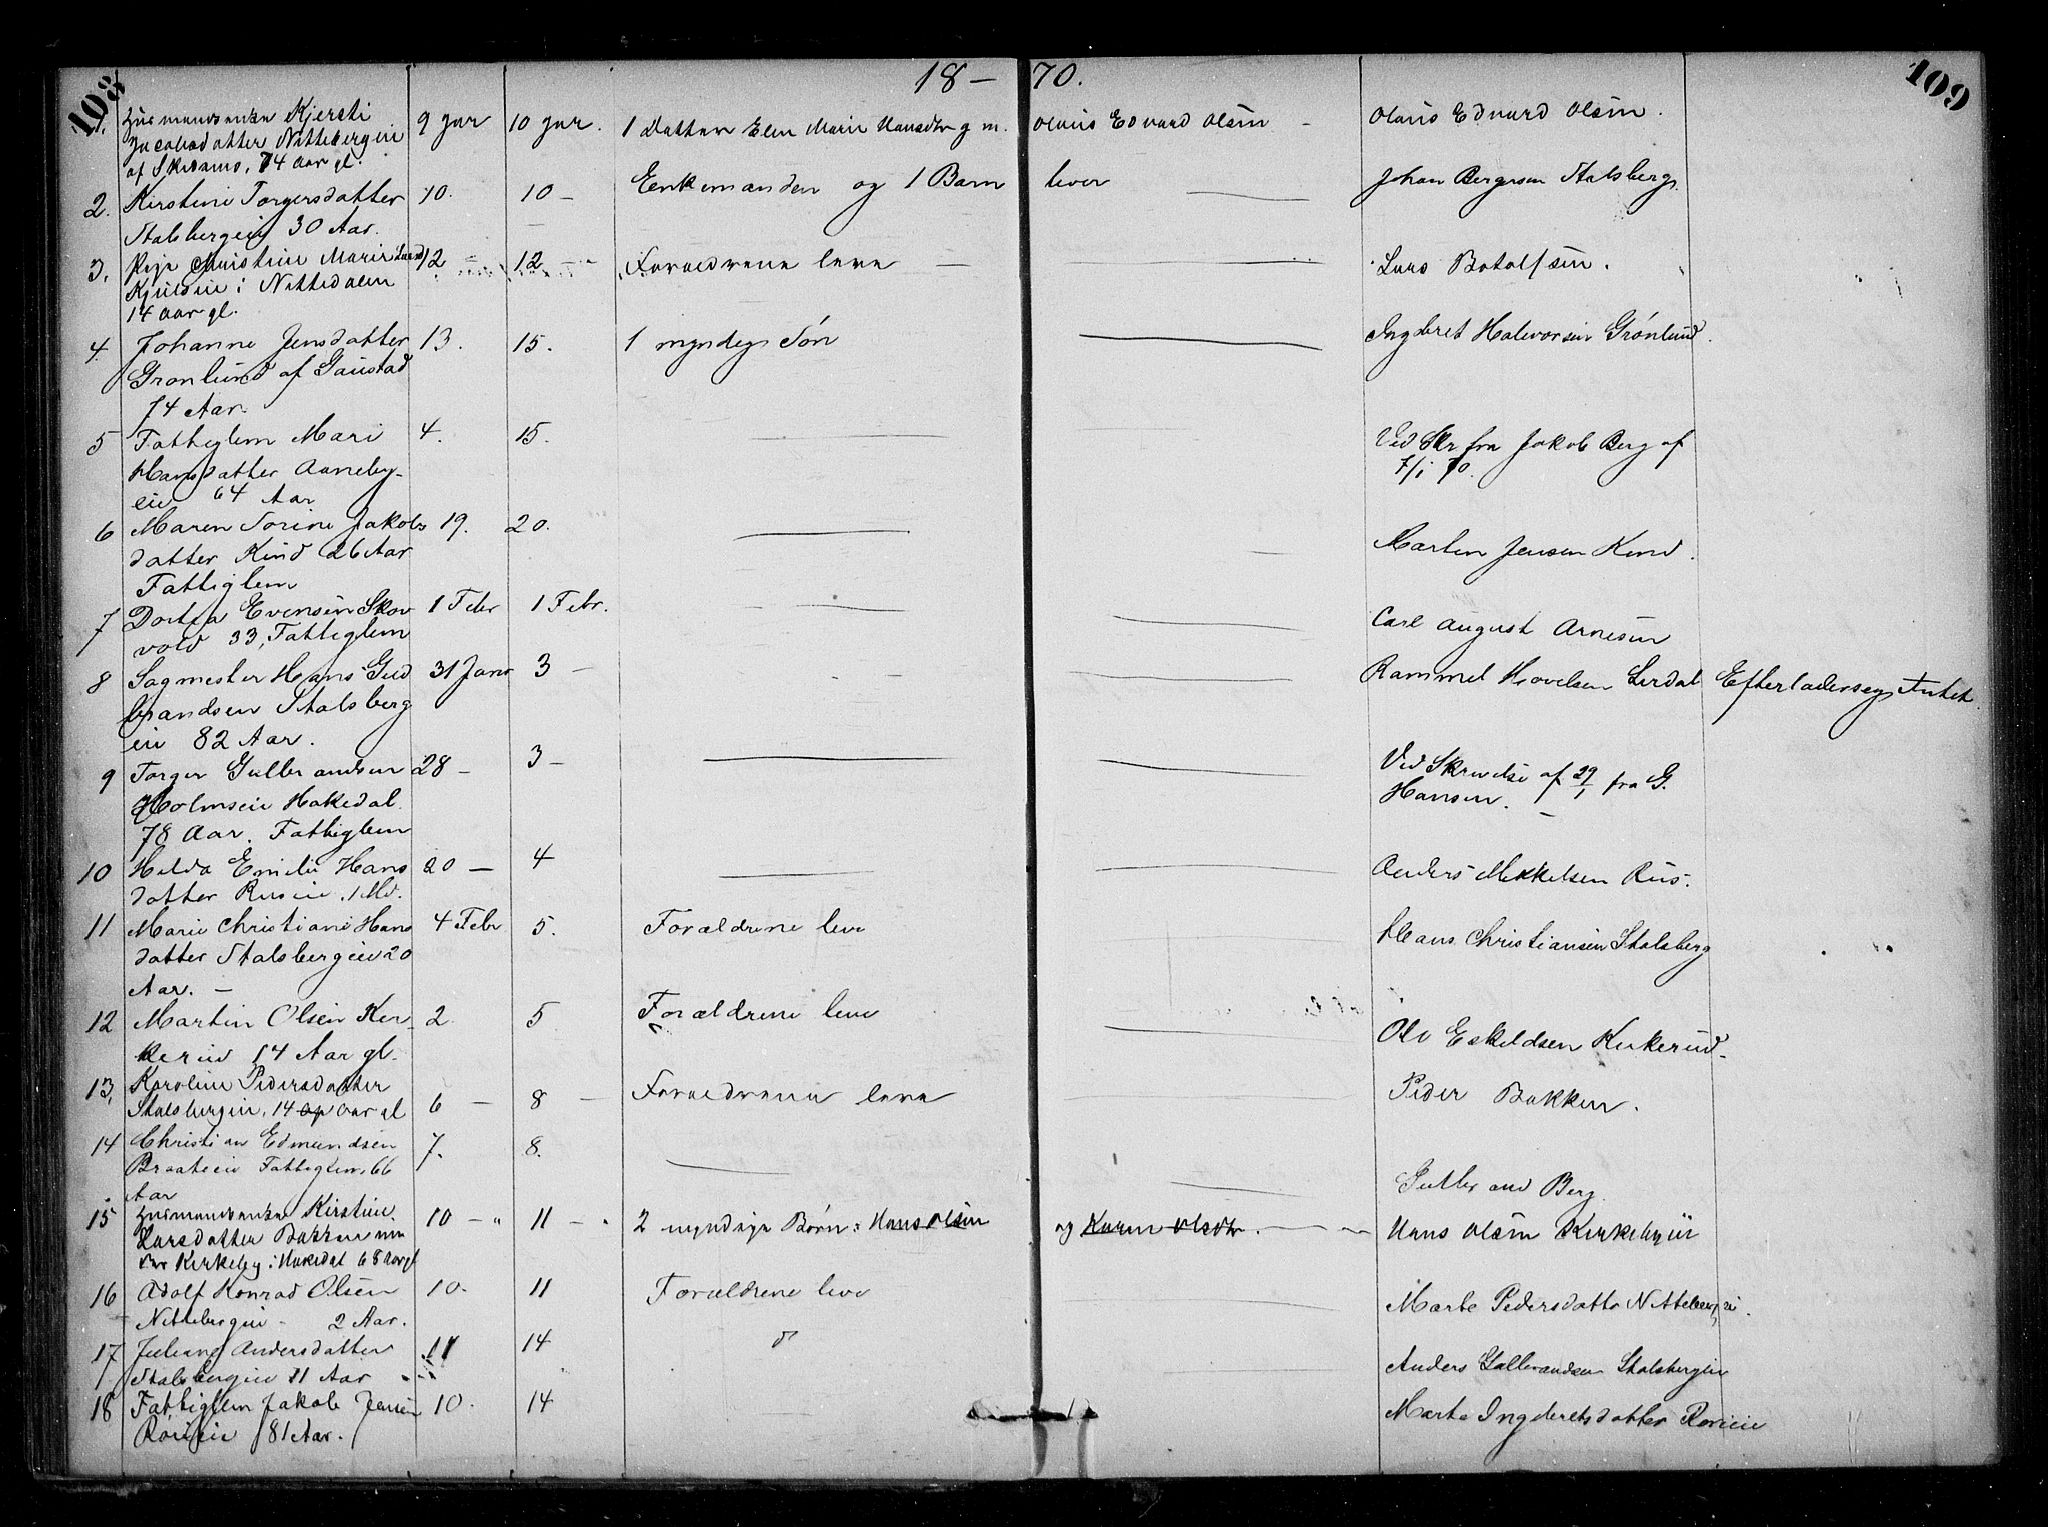 108
18 – 70.
109
1. Husmandsenke Kjersti 9 Jan 10 Jan. 1 Datter Elen Marie Hansdtr g. m. Olaus Edvard Olsen – Olaus Edvard Olsen.
Jacobsdatter Nittebergeie
af Skedsmo, 74 Aar gl.
2. Kirstine Torgersdatter 10. 10 – Enkemanden og 1 Barn lever Johan Bergersen Stalsberg.
Stalsbergeie 30 Aar.
3. Pige Christine Marie Larsd 12 – 12 – Forældrene leve – Lars Botolfsen.
Kjulseie i Nittedalen
14 Aar gl.
4. Johanne Jensdatter 13. 15. 1 myndig Søn Ingebret Halvorsen Grønlund.
Grønlund af Gaustad
74 Aar.
5 Fattiglem Mari 4. 15. Ved Skr fra Jakob Berg af
Hansdatter Aaneby- 7/1 70.
eie 64 Aar
6 Maren Sorine Jakobs 19. 20. Martin Jensen Kind.
datter Kind 26 Aar
Fattiglem
7 Dortea Evensen Skov 1 Febr 1 Febr. Carl August Arnesen
vold 33, Fattiglem
8 Sagmester Hans Gud 31 Janr 3 – Rammel Hovelsen Lirdal Efterladenseg Intet.
brandsen Stalsberg
eie 82 Aar.
9 Torger Gulbrandsen 28 – 3 – Ved Skrivelse af 29/1 fra G.
Holmseie Hakedal. Hansen. –
78 Aar. Fattiglem
10 Hilda Emilie Hans 20 – 4 Anders Mikkelsen Rus.
datter Ruseie. 1 Md.
11 Marie Christiane Hans 4 Febr 5. Forældrene leve Hans Christiansen Stalsberg
datter Stalsbergeie 20
Aar. –
12 Martin Olsen Kir- 2 5 Forældrene leve Ole Eskildsen Kirkerud.
kerud 14 Aar gl.
13, Karoline Pedersdatter
Stalsbergeie, 14 Aar gl 6 – 8 – Forældrene leve Peder Bakken.
14 Christian Edmundsen 7. 8. Gulbrand Berg.
Braateeie Fattiglem, 66
Aar
15 Husmandsenke Kirstine 10 – " 11 – " 2 myndige Børn: Hans Olsen og Karen Olsdtr. – Hans Olsen Kirkebyeie
Larsdatter Bakken un
der Kirkeby i Hakedal 68 Aar gl
16 Adolf Konrad Olsen 10. 11 Forældrene leve Marte Pedersdatter Nitteberg ei.
Nittebergeie – 2 Aar.
17 Juliane Andersdatter 11 14 d Anders Gulbrandsen Stalsbergeie
Stalsbergeie 11 Aar
18 Fattiglem Jakob Jensen 10. 14 Marte Ingebretsdatter Røneie
Røneie 81 Aar.